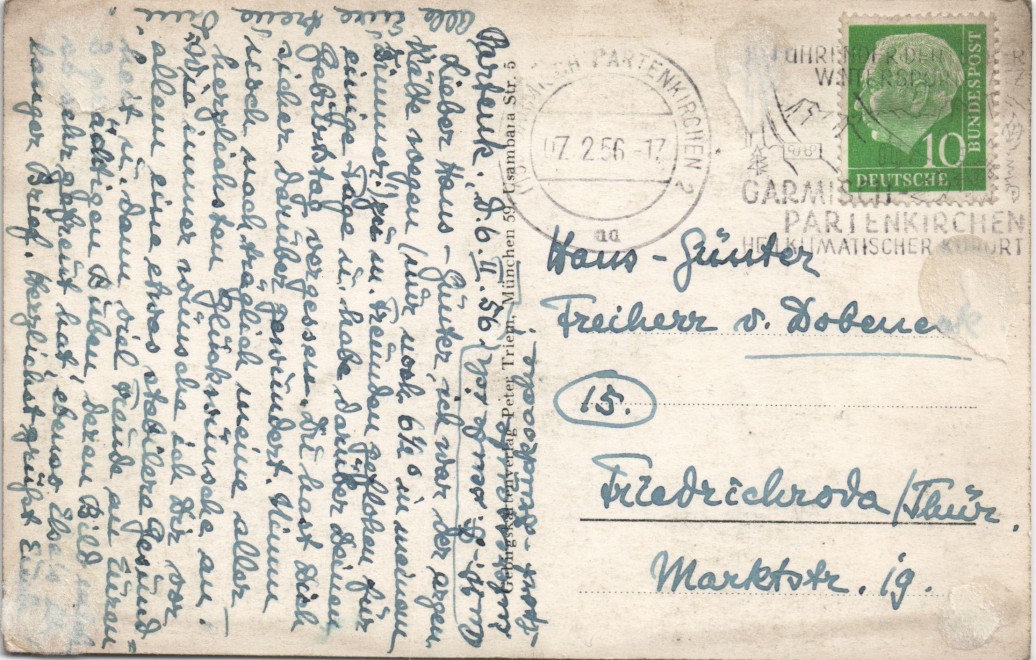 Partenk., d. 6. II. 56.
Lieber Hans-Günter, ich war der argen
Kälte wegen (nur noch 6½° in meinem
Zimmer!) zu Freunden geflohen für
einige Tage u. habe darüber Deinen
Gebürtstag vergessen. Du hast Dich
sicher darüber gewundert. Nimm
nach träglich meine aller
herzlichsten Glückwünsche an.
Wie immer wünsche ich Dir vor
allem eine etwas stabilere Gesund
heit u. dann viel Freude an Euren
Buben, deren Bild
so sehr gefreut hat, ebenso
langer Brief. Herzlichst grüßt
Alle
Sport-Drucksache.
Gebirgskartenverlag Peter Triem, München 59, Usambara Str. 5
GARMISCH PARTENKIRCHEN 2
07.2.56-17
aa
FÜHRENDER DEUTSCHER
WINTERSPORT
GARMISCH
PARTENKIRCHEN
HEILKLIMATISCHER KURORT
10
BUNDESPOST
DEUTSCHE
Hans-Günter
Freiherr v. Dobeneck.
15.
Friedrichroda/Thür.
Marktstr. 19.